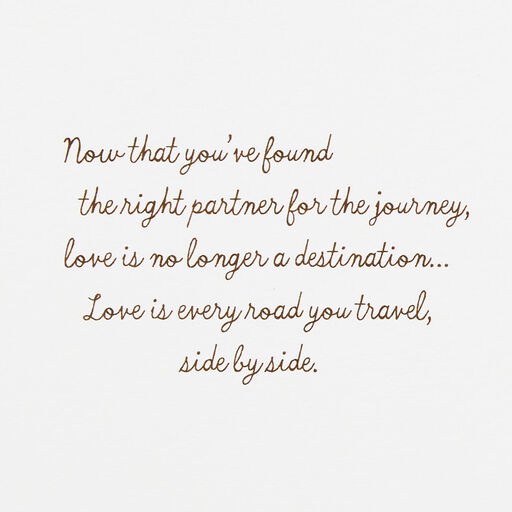 Now that you've found
the right partner for the journey,
love is no longer a destination...
Love is every road you travel,
side by side.